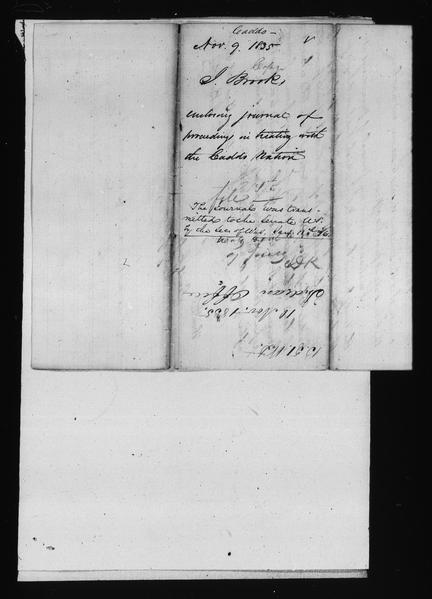 Caddo-
Nov. 9. 1835
J. Brooks
enclosing journal of
proceedings in treating with
the Caddo Nation
file
The Journal was trans-
mitted to the Senate U.S.
by the Sec of War, Jany
Indian Office
10 Nov. 1835.